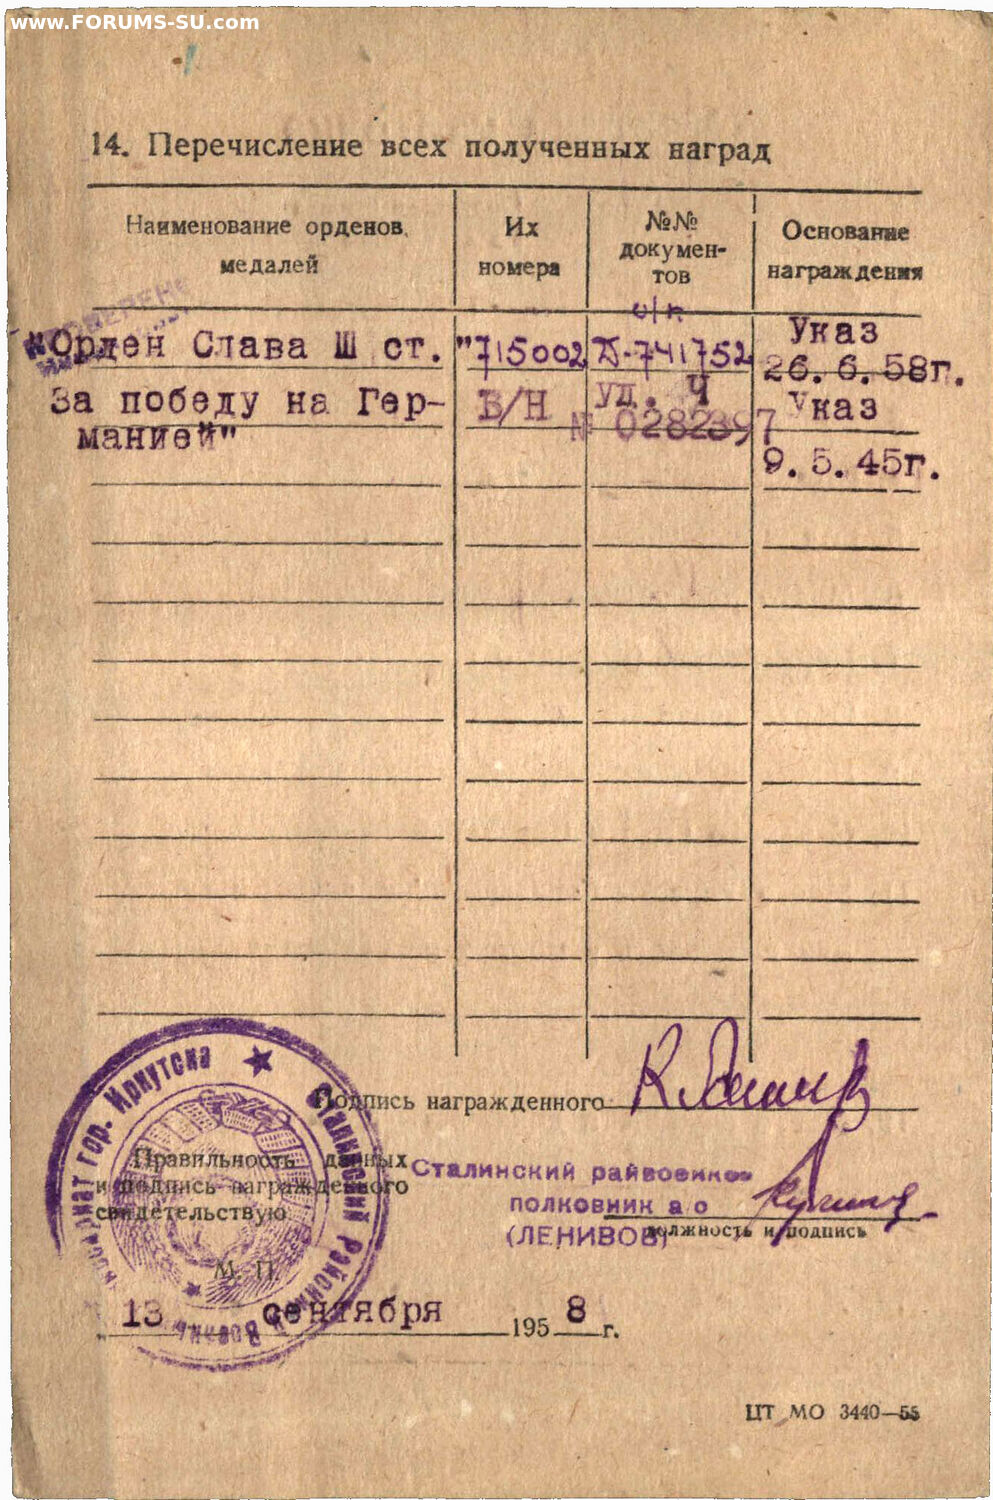 www.FORUMS-SU.com
14. Перечисление всех полученных наград
Наименование орденов, медалей
Их номера
№№ документов
Основание награждения
о/к
"Орден Слава Ш ст. "715002 Д-741752 Указ 26.6.58г.
За победу на Гер-
манией" Б/Н УД. Ч № 0282397 Указ 9.5.45г.
Подпись награжденного
Правильность данных
и подпись награжденного
свидетельствую
Сталинский райвоенком
полковник а/с
(ЛЕНИВОВ)
должность и подпись
М. П.
гор. Иркутска ★ Сталинский Районный Военный
13 сентября 1958 г.
ЦТ МО 3440—55